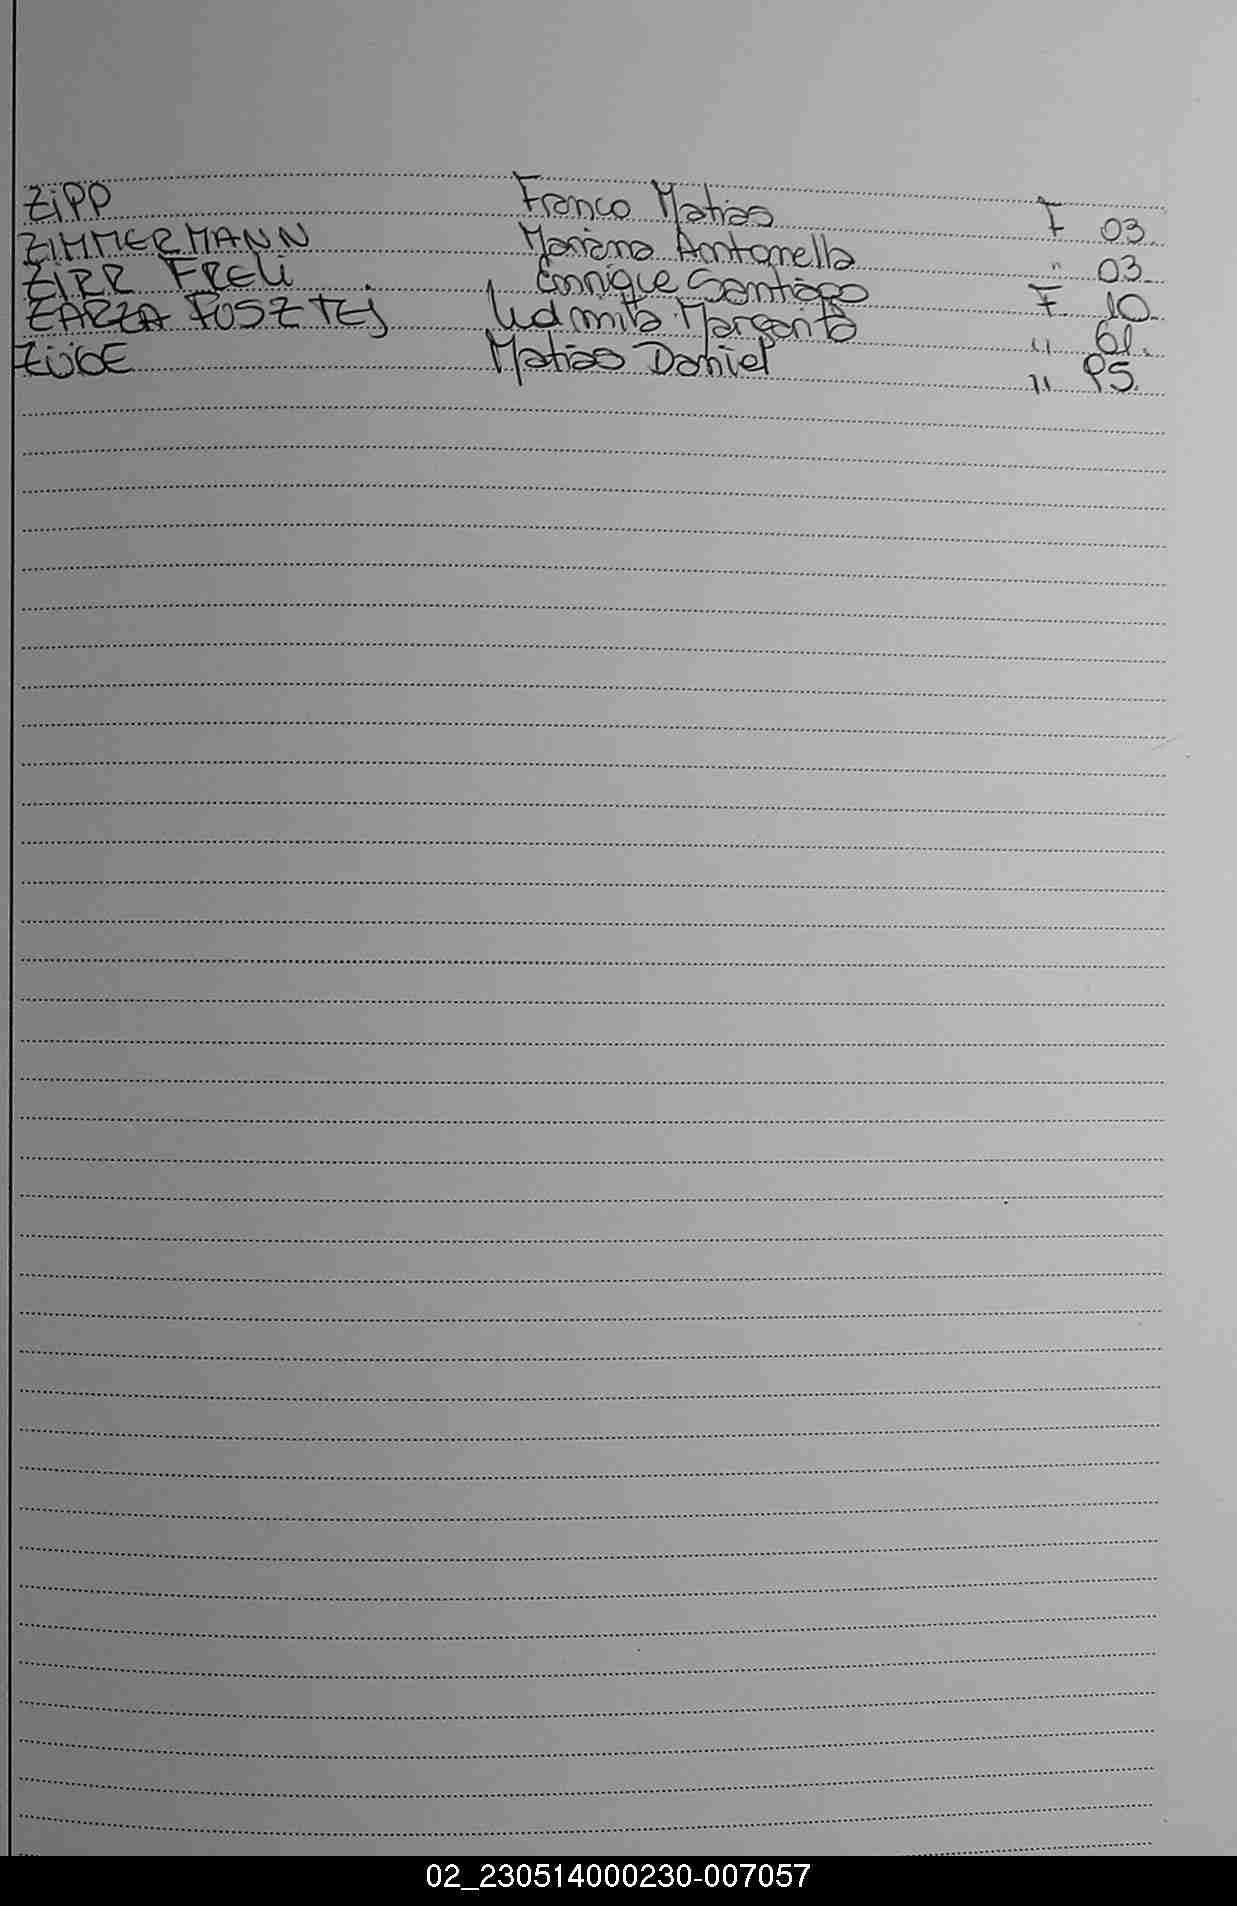 ZiPP Franco Matias F 03.
ZIMMERMANN Mariana Antonella " 03.
ZIRR FRELi Enrique Santiago F. 10.
ZARZA FOSZTEJ Ludmila Margarita " 61.
ZÜGE Matias Daniel " 95.
02_230514000230-007057